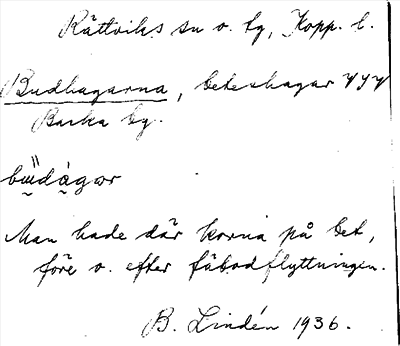 Rättviks sn o. tg, Kopp. l.
Budhagarna, beteshagar VSV
Backa by.
Man hade där korna på bet,
före o. efter fäbodflyttningen.
B. Lindén 1936.